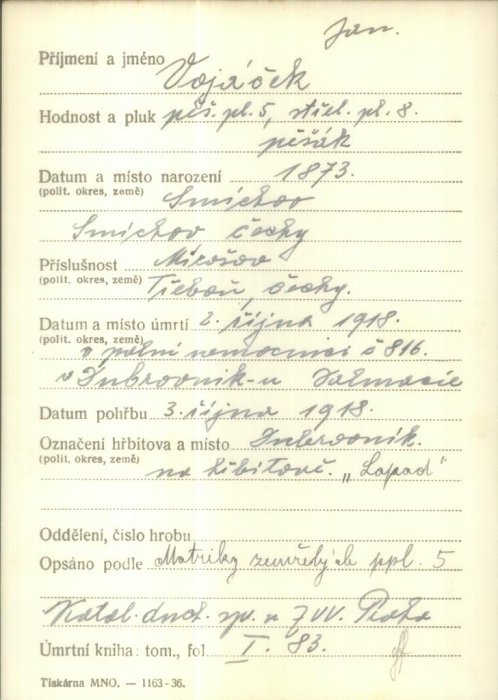 Jan.
Příjmení a jméno Vojáček
Hodnost a pluk pěš. pl. 5, střel. pl. 8.
pěšák
Datum a místo narození 1873.
(polit. okres, země) Smíchov
Smíchov Čechy
Příslušnost Mirošov
(polit. okres, země) Třeboň, Čechy.
Datum a místo úmrtí 2. října 1918.
(polit. okres, země) v polní nemocnici č 816.
v Dubrovník-u Dalmacie
Datum pohřbu 3. října 1918.
Označení hřbitova a místo Dubrovník.
(polit. okres, země) na hřbitově. „Lapad"
Oddělení, číslo hrobu
Opsáno podle Matriky zemřelých ppl. 5
Katol. duch. sp. u ZVV. Praha
Úmrtní kniha: tom., fol. I. 83.
Tiskárna MNO. — 1163-36.